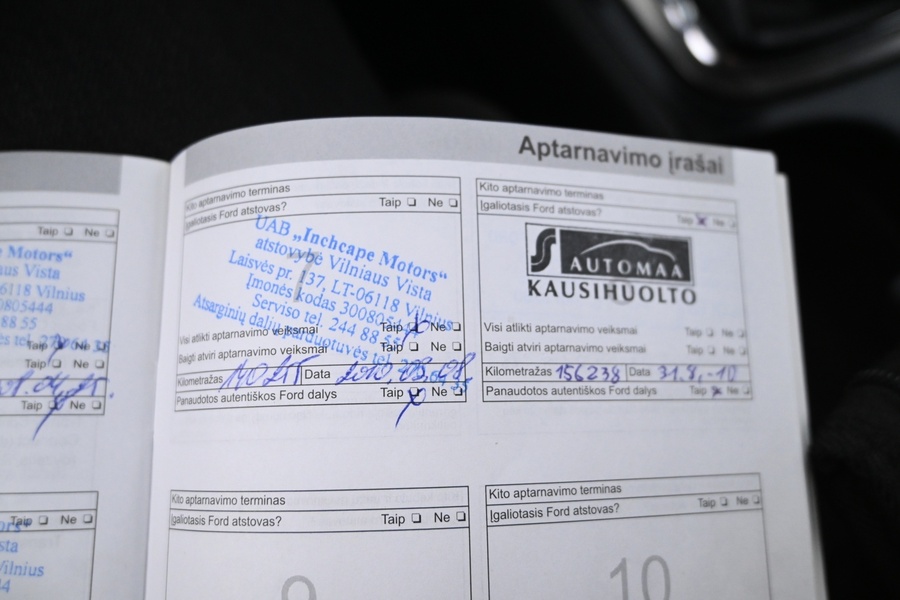 Aptarnavimo įrašai
Taip ❏ Ne ❏
e Motors“
us Vista
18 Vilnius
00805444
88 55
Taip ❏ Ne ❏
Taip ❏ Ne ❏
Taip ❏ Ne ❏
Kito aptarnavimo terminas
Įgaliotasis Ford atstovas? Taip ❏ Ne ❏
UAB „Inchcape Motors“
atstovybė Vilniaus Vista
Laisvės pr. 137, LT-06118 Vilnius
Įmonės kodas
Serviso tel. 244 88 55
Atsarginių dalių parduotuvės tel.
Visi atlikti aptarnavimo veiksmai Taip ❏ Ne ❏
Baigti atviri aptarnavimo veiksmai Taip ❏ Ne ❏
Kilometražas Data
Panaudotos autentiškos Ford dalys Taip ❏ Ne ❏
Kito aptarnavimo terminas
Įgaliotasis Ford atstovas? Taip ❏ Ne ❏
AUTOMAA
KAUSIHUOLTO
Visi atlikti aptarnavimo veiksmai Taip ❏ Ne ❏
Baigti atviri aptarnavimo veiksmai Taip ❏ Ne ❏
Kilometražas 156238 Data 31.8.-10
Panaudotos autentiškos Ford dalys Taip ❏ Ne ❏
Taip ❏ Ne ❏
sta
Vilnius
Kito aptarnavimo terminas
Įgaliotasis Ford atstovas? Taip ❏ Ne ❏
9
Kito aptarnavimo terminas
Įgaliotasis Ford atstovas? Taip ❏ Ne ❏
10